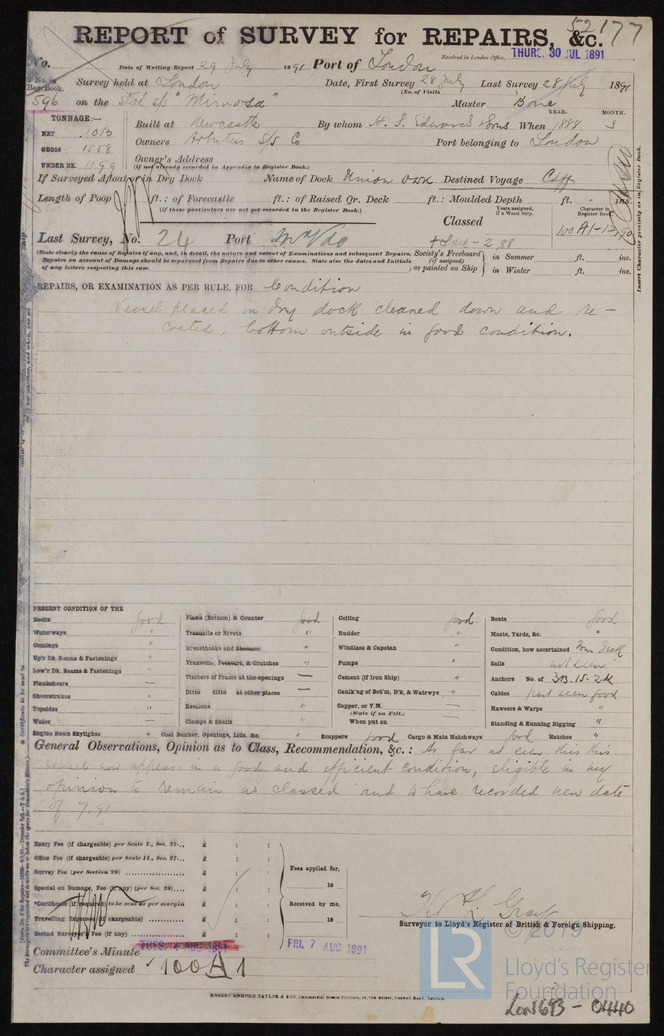 52177
REPORT of SURVEY for REPAIRS, &c.
Received in London Office, THURS. 30 JUL 1891
No. Date of Writing Report 29 July 1891 Port of London
No. in Reg. Book. Survey held at London Date, First Survey 28 July Last Survey 28 July 1891
(No. of Visits)
596 on the Steel s/s "Mimosa" Master Bone
TONNAGE:—
YEAR. MONTH.
NET 1013 Built at Newcastle By whom H. S. Edwards & Sons When 1888 3
GROSS 1558 Owners Arbutus S/S Co Port belonging to London
UNDER DK. 1199 Owner's Address
(If not already recorded in Appendix to Register Book.)
If Surveyed Afloat or in Dry Dock Name of Dock Union Dock Destined Voyage
Length of Poop ft.: of Forecastle ft.: of Raised Qr. Deck ft.: Moulded Depth ft. ins.
(If these particulars are not yet recorded in the Register Book.)
Years assigned, if a Wood Ship. Character in Register Book.
Classed 100 A1
Last Survey, No. 24 Port
(State clearly the cause of Repairs if any, and, in detail, the nature and extent of Examinations and subsequent Repairs.
Repairs on account of Damage should be separated from Repairs due to other causes. State also the dates and Initials
of any letters respecting this case.
Society's Freeboard (if assigned) as painted on Ship
in Summer ft. ins.
in Winter ft. ins.
Insert Character precisely as in Register Book.
REPAIRS, OR EXAMINATION AS PER RULE, FOR Condition
Vessel placed in dry dock cleaned down and re-
coated. bottom outside in good condition.
PRESENT CONDITION OF THE
Decks good
Waterways "
Comings "
Up'r Dk. Beams & Fastenings "
Low'r Dk. Beams & Fastenings "
Planksheers —
Sheerstrakes "
Topsides "
Wales —
Engine Room Skylights "
Plank (Bottom) & Counter good
Treenails or Rivets "
Breasthooks and Stemson "
Transoms, Pointers, & Crutches "
Timbers of Frame at the openings —
Ditto ditto at other places —
Keelsons "
Clamps & Shelfs
Coal Bunker, Openings, Lids, &c. "
Ceiling good
Rudder "
Windlass & Capstan "
Pumps "
Cement (if Iron Ship) "
Caulk'g of Bot'm, D'k, & Waterways "
Copper, or Y.M. —
(State if on Felt.)
When put on
Scuppers good Cargo & Main Hatchways good Hatches "
Boats good
Masts, Yards, &c. "
Condition, how ascertained From Deck
Sails not seen
Anchors No. of 3B. 1S. 2K
Cables part seen good
Hawsers & Warps "
Standing & Running Rigging "
General Observations, Opinion as to Class, Recommendation, &c.: As far as seen this
vessel now appears in a good and efficient condition, eligible in my
opinion to remain as classed and to have recorded new date
of 7.91
Entry Fee (if chargeable) per Scale I., Sec. 27.., £ : :
Office Fee (if chargeable) per Scale II., Sec. 27.., £ : :
Survey Fee (per Section 28) £ : :
Special or Damage, Fee (if any) (per Sec. 28) £ : :
*Certificate (if required) to be sent as per margin £ : :
Travelling Expenses (if chargeable) £ : :
Second Surveyor's Fee (if any) £ : :
Fees applied for,
18
Received by me,
18
Surveyor to Lloyd's Register of British & Foreign Shipping.
Committee's Minute
FRI. 7 AUG 1891
Character assigned 100A1
© 2019
LR
Lloyd's Register
Foundation
Lon 693 - 0440